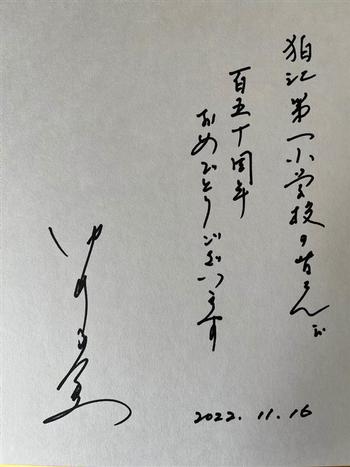 狛江第一小学校の皆さんが
百五十周年
おめでとうございます
2022.11.16